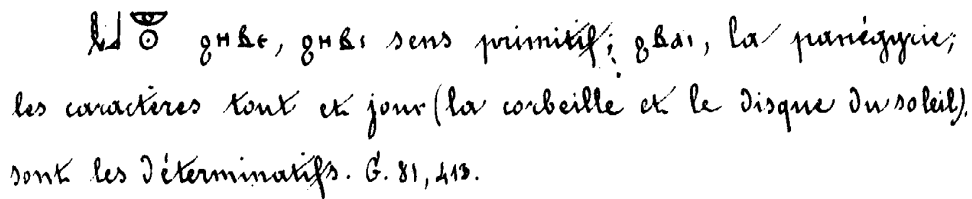 ϩⲏⲃⲉ, ϩⲏⲃⲓ sens primitif; ϩⲃⲁⲓ, la panégyrie;
les caractères tout et jour (la corbeille et le disque du soleil).
sont les déterminatifs. G. 81, 413.